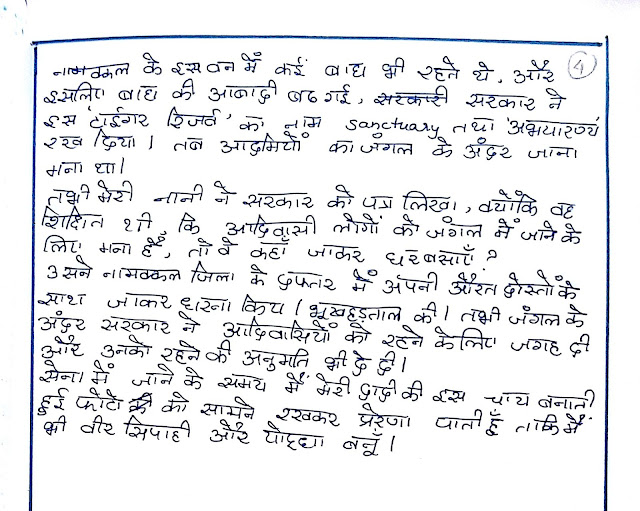 4
नामक्कल के इस वन में कई बाघ भी रहते थे, और
इसलिए बाघ की आबादी बढ गई, सरकारी सरकार ने
इस 'टाईगर रिजर्व' का नाम sanctuary तथा 'अभयारण्य'
रख दिया। तब आदमियों का जंगल के अंदर जाना
मना था।
तभी मेरी नानी ने सरकार को पत्र लिखा, क्योंकि वह
शिक्षित थी, कि आदिवासी लोगों को जंगल में जाने के
लिए मना हैं, तो वे कहाँ जाकर घर बसाएँ?
उसने नामक्कल जिला के दफ्तर में अपनी औरत दोस्तों के
साथ जाकर धरना किय। भूखहड़ताल की। तभी जंगल के
अंदर सरकार ने आदिवासियों को रहने के लिए जगह दी
और उनको रहने की अनुमति भी दे दी।
सेना में जाने के समय में मेरी दादी की इस चाय बनाती
हुई फोटो को सामने रखकर प्रेरणा पाती हूँ ताकि मैं
भी वीर सिपाही और योद्धा बनूँ।